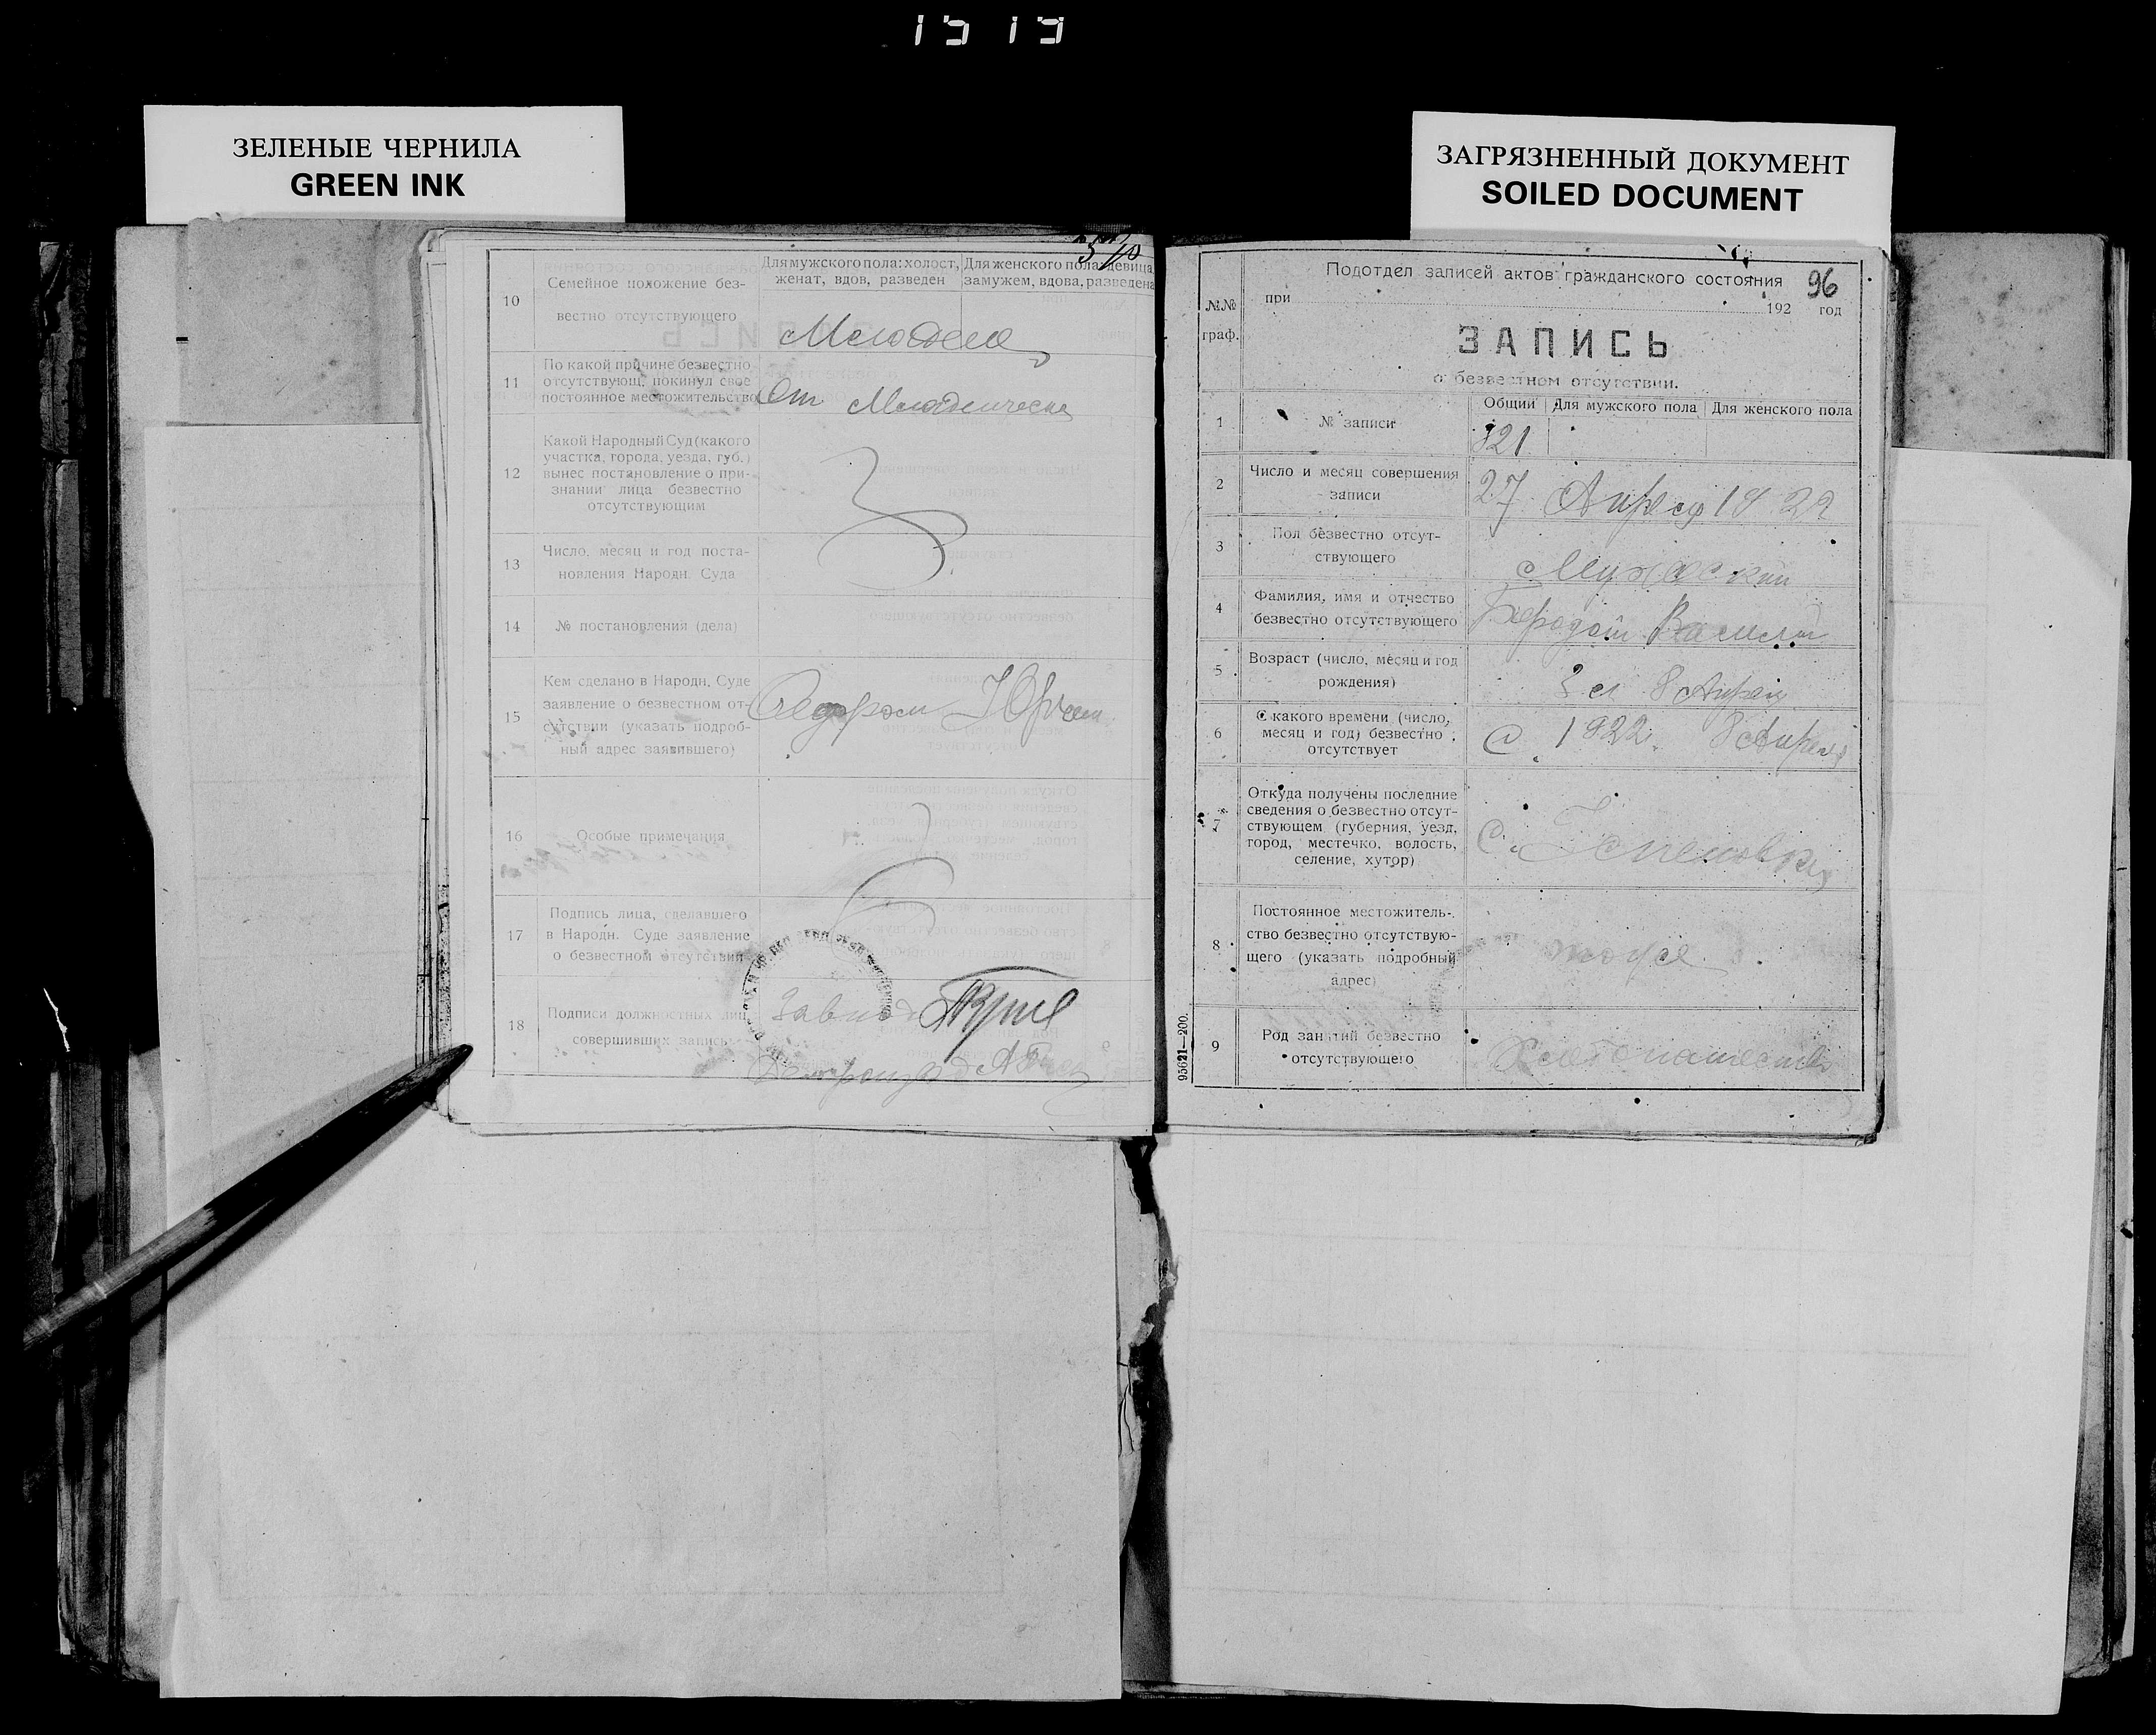 1519
ЗЕЛЕНЫЕ ЧЕРНИЛА
GREEN INK
ЗАГРЯЗНЕННЫЙ ДОКУМЕНТ
SOILED DOCUMENT
10
Семейное положение без-
вестно отсутствующего
Для мужского пола: холост,
женат, вдов, разведен
Для женского пола: девица,
замужем, вдова, разведена
11
По какой причине безвестно
отсутствующ. покинул свое
постоянное местожительство
От
12
Какой Народный Суд (какого
участка, города, уезда, губ.)
вынес постановление о при-
знании лица безвестно
отсутствующим
13
Число, месяц и год поста-
новления Народн. Суда
14
№ постановления (дела)
15
Кем сделано в Народн. Суде
заявление о безвестном от-
сутствии (указать подроб-
ный адрес заявившего)
16
Особые примечания
17
Подпись лица, сделавшего
в Народн. Суде заявление
о безвестном отсутствии
18
Подписи должностных лиц,
совершивших запись
96
Подотдел записей актов гражданского состояния
при 192 год
№№
граф.
ЗАПИСЬ
о безвестном отсутствии.
1
№ записи
Общий
Для мужского пола
Для женского пола
321
2
Число и месяц совершения
записи
27 Апреля 1922
3
Пол безвестно отсут-
ствующего
Мужский
4
Фамилия, имя и отчество
безвестно отсутствующего
Василий
5
Возраст (число, месяц и год
рождения)
8 Апреля
6
С какого времени (число,
месяц и год) безвестно
отсутствует
С 1922 8 Апреля
7
Откуда получены последние
сведения о безвестно отсут-
ствующем (губерния, уезд,
город, местечко, волость,
селение, хутор)
8
Постоянное местожитель-
ство безвестно отсутствую-
щего (указать подробный
адрес)
тоже
9
Род занятий безвестно
отсутствующего
95621—200.